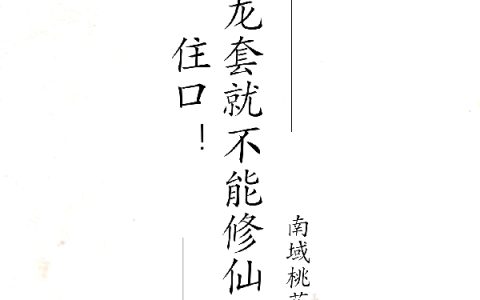 南域桃
龙套就不能修仙
住口！